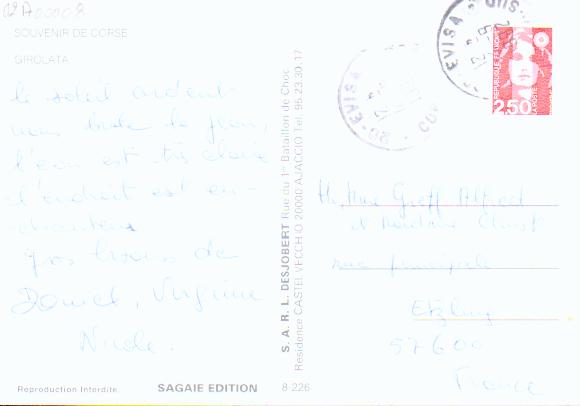 02A00008
SOUVENIR DE CORSE
GIROLATA
le soleil ardent
nous brule la peau,
l'eau est très claire
l'endroit est en-
chanteur
gros bisous de
Daniel, Virginie
Nicole.
Reproduction Interdite
SAGAIE EDITION
8-226
S. A. R. L. DESJOBERT Rue du 1er Bataillon de Choc
Residence CASTEL VECCHIO 20000 AJACCIO Tel. 95.23.30.17
20-EVISA
EVISA
REPUBLIQUE FRANÇAISE
2,50
LA POSTE
Greff Alfred
et Madame
rue principale
Etzling
57600
France